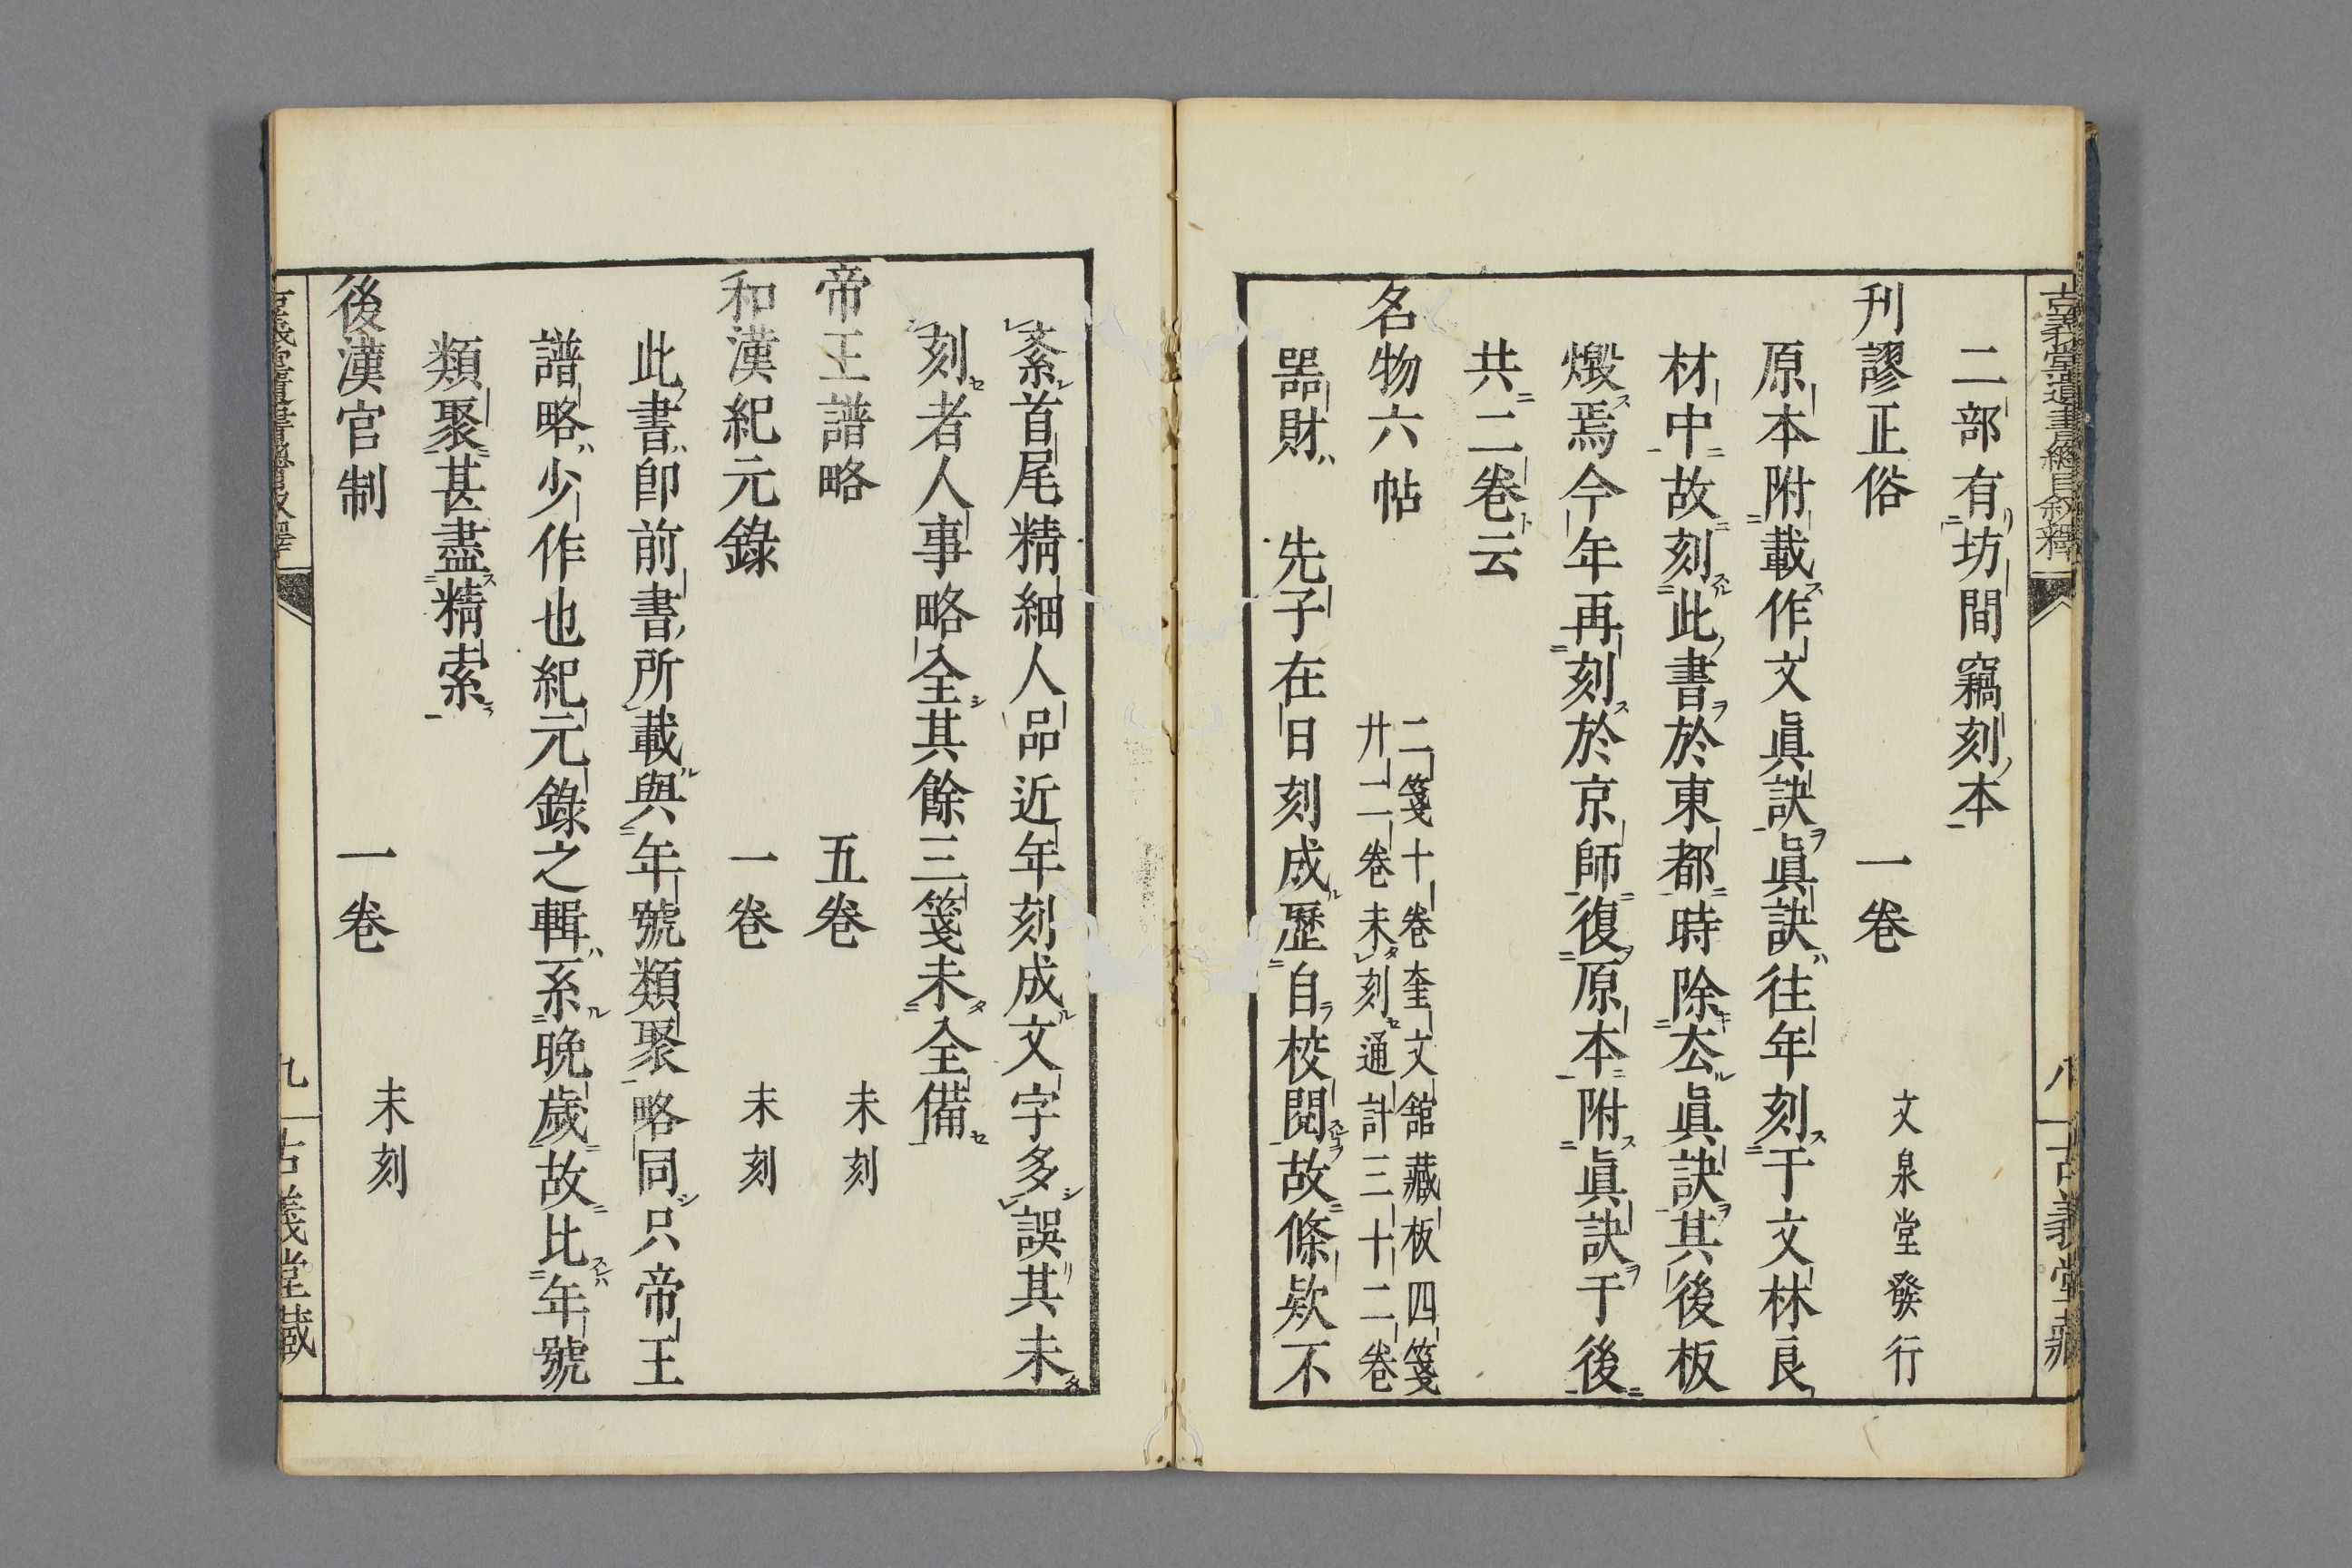 古義堂遺書總目叙釋
八
古義堂藏
二部有坊間竊刻本
刊謬正俗 一卷 文泉堂發行
原本附載作文眞訣眞訣往年刻于文林良
材中故刻此書於東都時除厺眞訣其後板
燬焉今年再刻於京師復原本附眞訣于後
共二卷云
名物六帖 二箋十卷奎文舘藏板四箋
廿二卷未刻通計三十二卷
器財 先子在日刻成歷自校閱故條欵不
紊首尾精細人品近年刻成文字多誤其未
刻者人事略全其餘三箋未全備
帝王譜略 五卷 未刻
和漢紀元錄 一卷 未刻
此書卽前書所載與年號類聚略同只帝王
譜略少作也紀元錄之輯系晚歲故比年號
類聚甚盡精索
後漢官制 一卷 未刻
九
古義堂藏